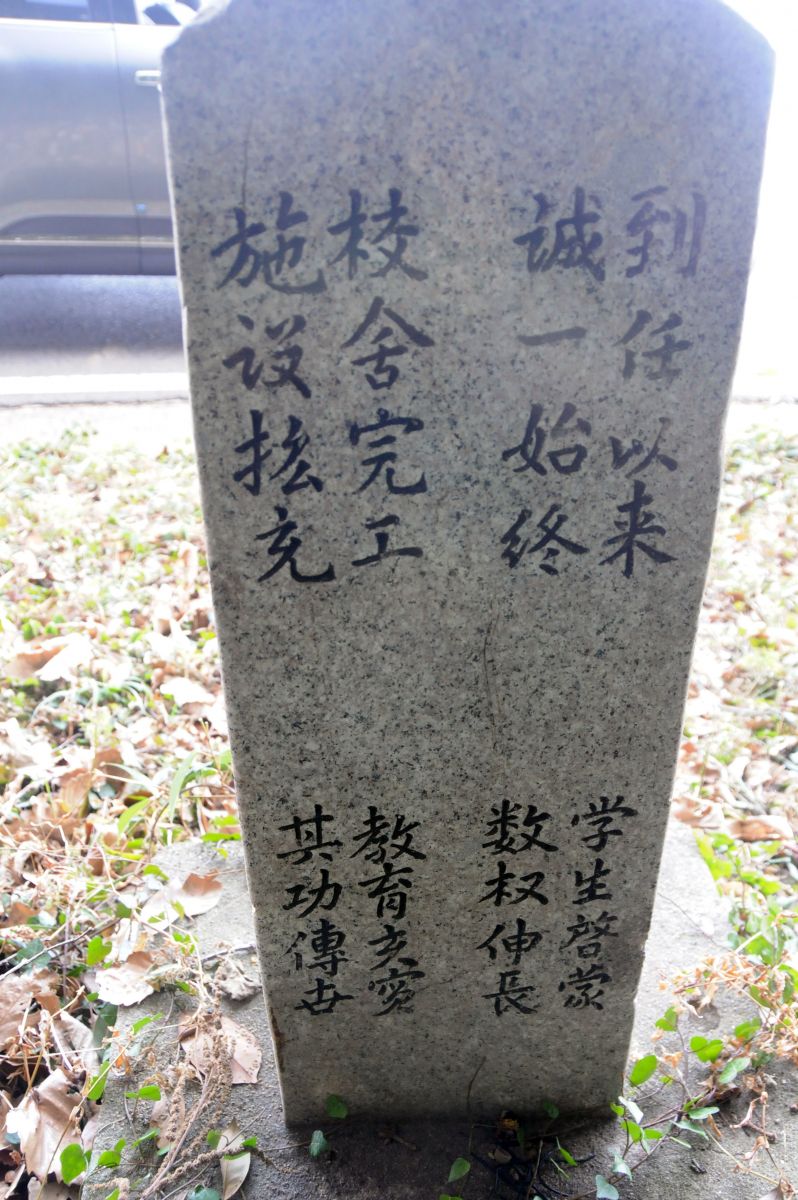 到任以来
誠一始終
校舍完工
施设拡充
学生啓蒙
数权伸長
教育
其功傳世